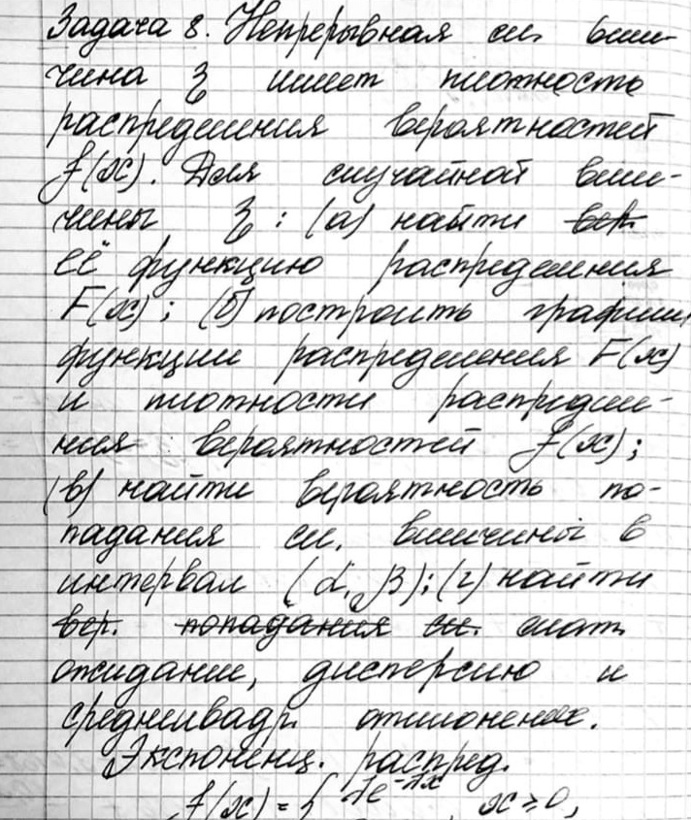 Задача 8. Непрерывная сл. вели-
чина ξ имеет плотность
распределения вероятностей
f(x). Для случайной вели-
чины ξ: (а) найти вер.
её функцию распределения
F(x); (б) построить графики
функции распределения F(x)
и плотности распределе-
ния вероятностей f(x);
(в) найти вероятность по-
падания сл. величины в
интервал (α, β); (г) найти
вер. попадания сл. мат.
ожидание, дисперсию и
среднеквадр. отклонение.
Экспоненц. распред.
f(x) = { λe^-λx, x ≥ 0,